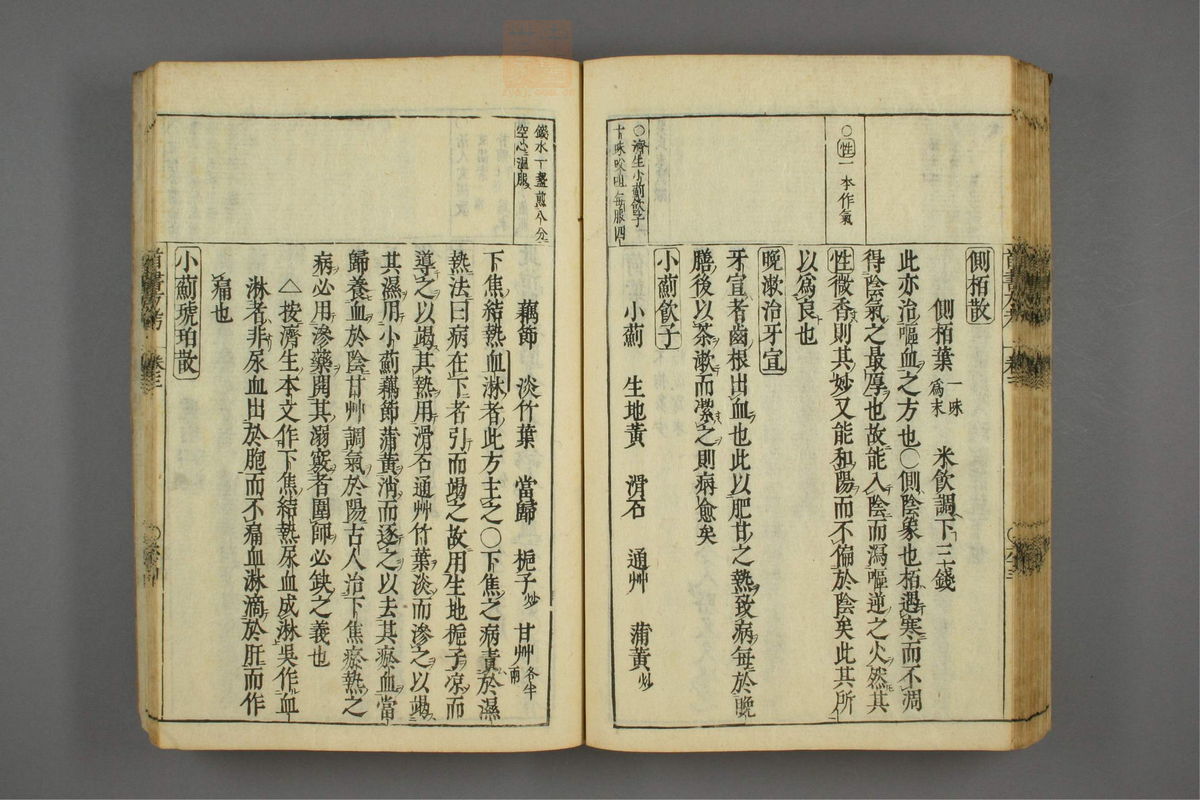 側栢散
側栢葉 一味爲末 米飲調下三錢
此亦治嘔血之方也○側陰象也栢遇寒而不凋
得陰氣之最厚也故能入陰而瀉嘔逆之火然其
性微香則其妙又能和陽而不偏於陰矣此其所
以爲良也
晚漱治牙宣
牙宣者齒根出血也此以肥甘之熱致病每於晚
膳後以茶漱而潔之則病愈矣
小薊飲子
小薊 生地黃 滑石 通艸 蒲黃炒
○性一本作氣
○濟生小薊飲子
廿味㕮咀每服四
藕節 淡竹葉 當歸 梔子炒 甘艸各半兩
下焦結熱血淋者此方主之○下焦之病責於濕
熱法曰病在下者引而竭之故用生地梔子凉而
導之以竭其熱用滑石通艸竹葉淡而滲之以竭
其濕用小薊藕節蒲黃消而逐之以去其瘀血當
歸養血於陰甘艸調氣於陽古人治下焦瘀熱之
病必用滲藥開其溺竅者圍師必缺之義也
△按濟生本文作下焦結熱尿血成淋吳作血
淋者非尿血出於胞而不痛血淋滴於肝而作
痛也
小薊琥珀散
錢水一盞煎八分
空心溫服
卷三